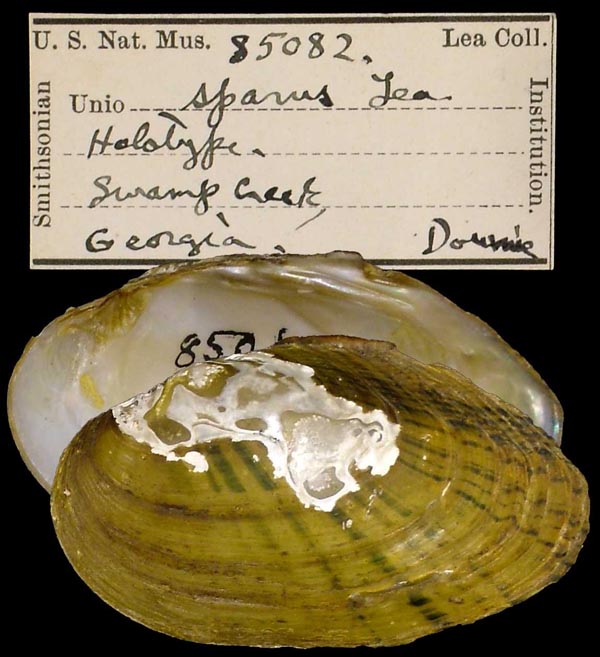 U. S. Nat. Mus. 85082. Lea Coll.
Unio sparus Lea
Holotype.
Swamp Creek
Georgia, Downie
Smithsonian
Institution.
850